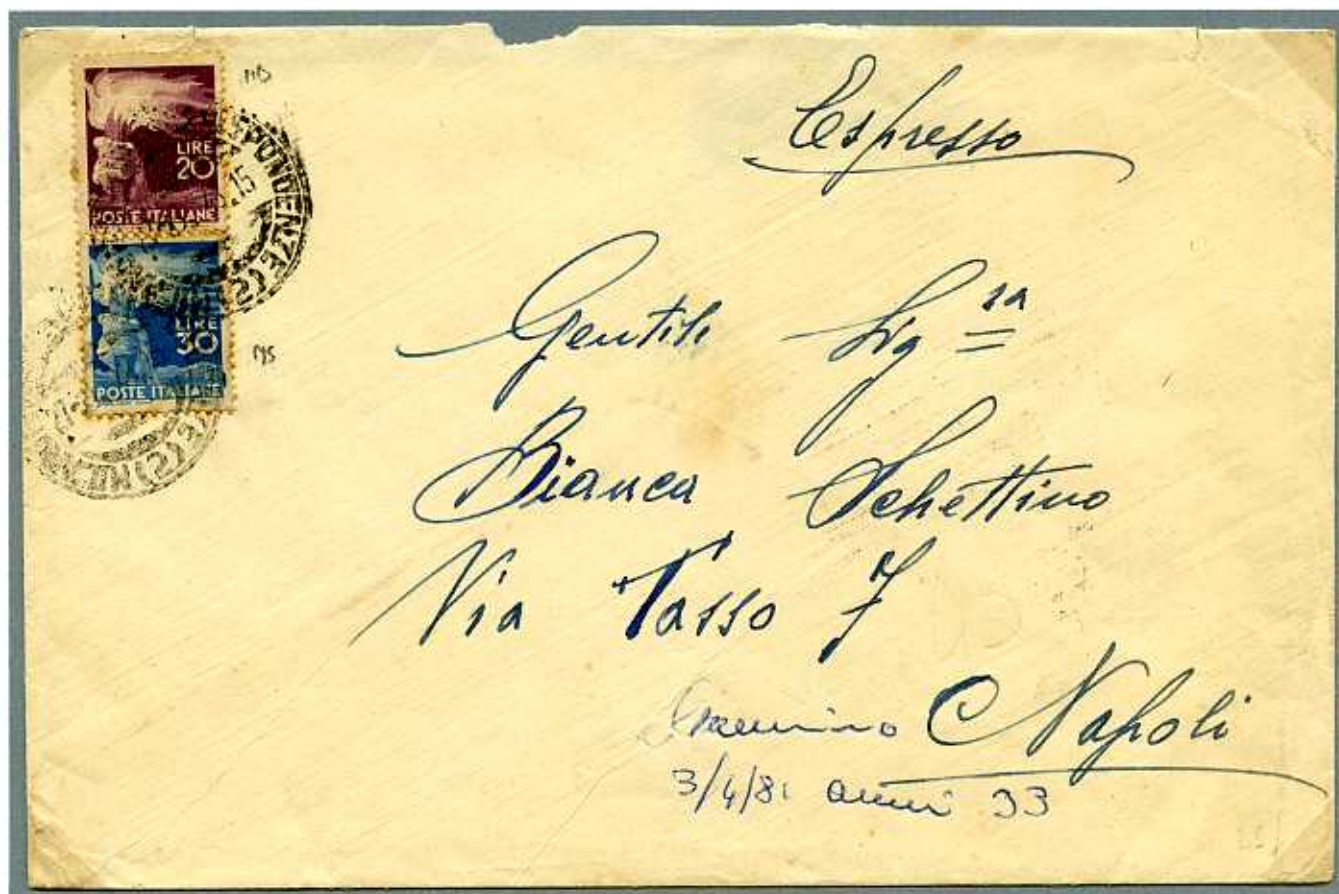 Espresso
LIRE
20
POSTE ITALIANE
LIRE
30
POSTE ITALIANE
Gentile Sig ra
Bianca Schettino
Via Tasso 7
Napoli
3/4/81 anni 33